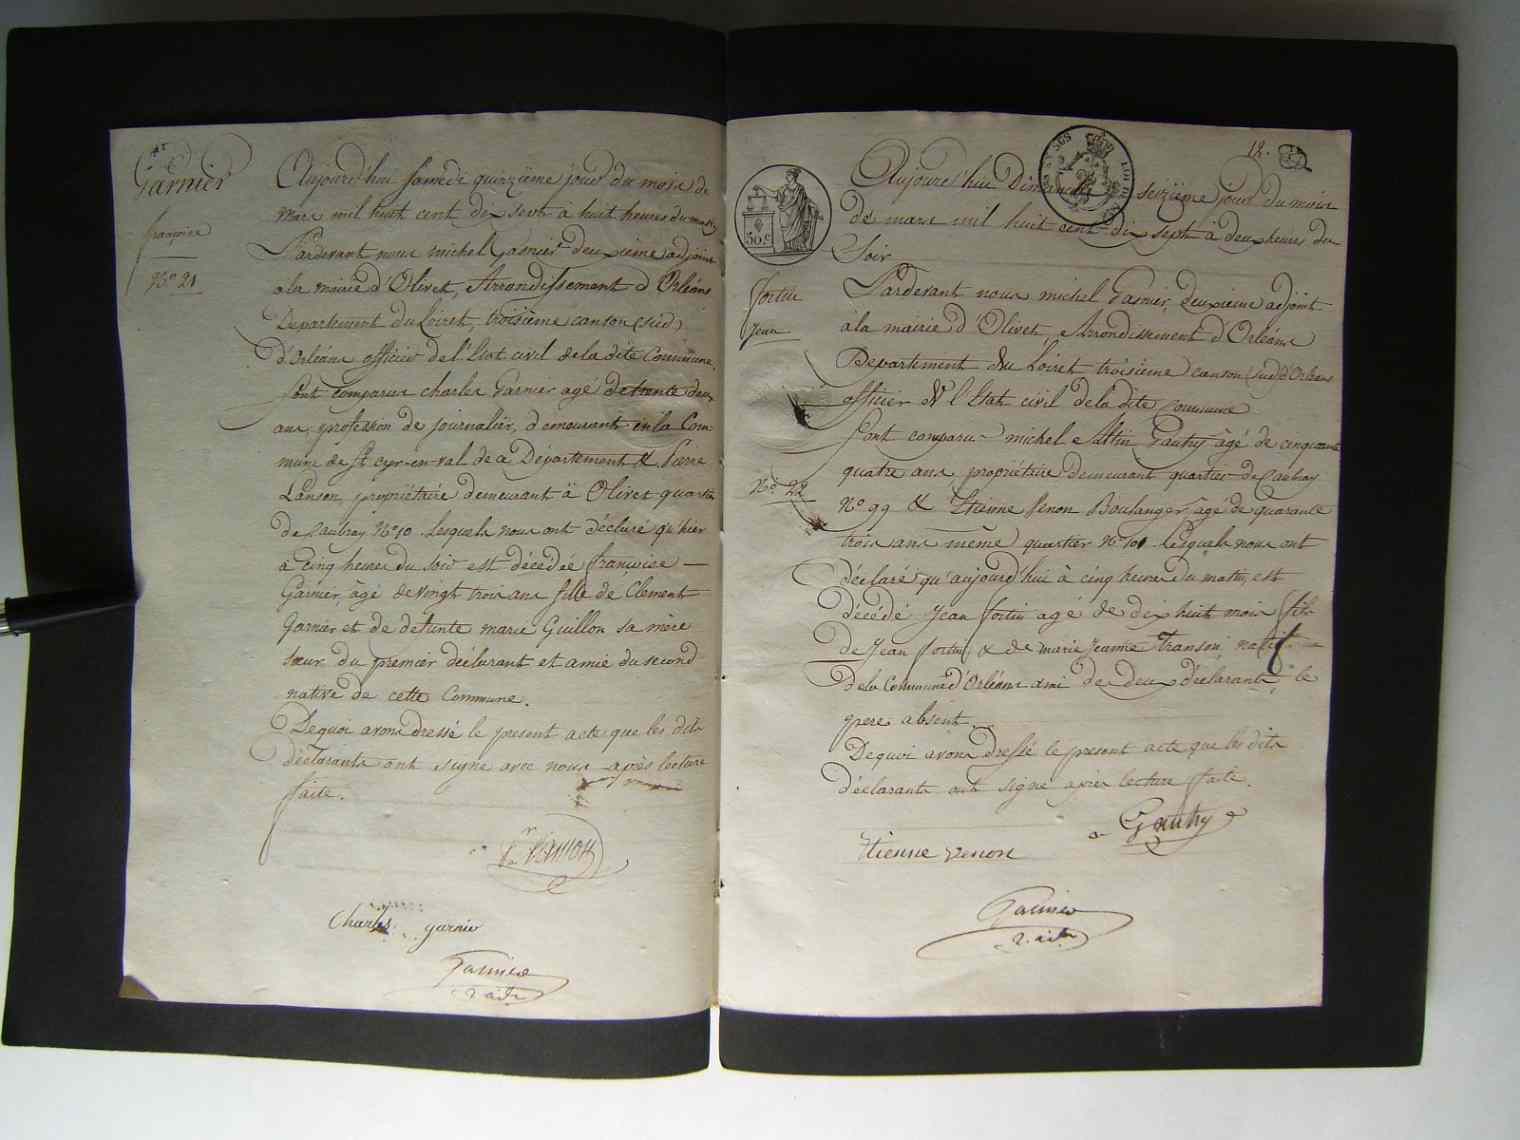 Garnier
françoise
N.° 21
Aujourd'hui Samedi quinzième jour du mois de
mars mil huit cent dix sept à huit heures du matin
Pardevant nous michel Garnier deuxième adjoint
a la mairie d'Olivet, Arrondissement d'Orléans
Departement du Loiret, troisième canton (sud)
d'Orléans officier de l'Etat civil de la dite Commune,
Sont comparus charles Garnier agé de trente deux
ans, profession de journalier, demeurant en la Com-
mune de St cyr-en-val de ce Département & Pierre
Lanson, propriétaire demeurant à Olivet quartier
de Caubray N° 10 Lesquels nous ont déclaré qu'hier
à cinq heures du soir est décédée françoise —
Garnier, âgé de vingt trois ans fille de Clement
Garnier et de defunte marie Guillon sa mère
sœur du premier déclarant et amie du second
native de cette Commune.
Dequoi avons dressé le present acte que les dits
déclarants ont signé avec nous après lecture
faite.
Charles garnier
Garnier
2. adt
12.
50 c
fortin
Jean
N.° 22
Aujourd'hui Dimanche seizième jour du mois
de mars mil huit cent dix sept à deux heures du
Soir
Pardevant nous michel Garnier, deuxieme adjoint
à la mairie d'Olivet, Arrondissement d'Orléans
Departement du Loiret troisième canton (sud) d'Orléans
officier de l'Etat civil de la dite commune
Sont comparus michel Gautry âgé de cinquante
quatre ans, propriétaire demeurant quartier de Caubray
N° 99 & Etienne Venon Boulanger, agé de quarante
trois ans même quartier N° 101 Lesquels nous ont
déclaré qu'aujourd'hui à cinq heures du matin, est
décédé Jean fortin agé de dix huit mois fils
de Jean fortin & de marie Jeanne Transon, natif
de la Commune d'Orléans ami des deux déclarants, le
pere absent
Dequoi avons dressé le present acte que les dits
déclarants ont signé après lecture faite.
Gautry
Etienne venon
Garnier
2. adt